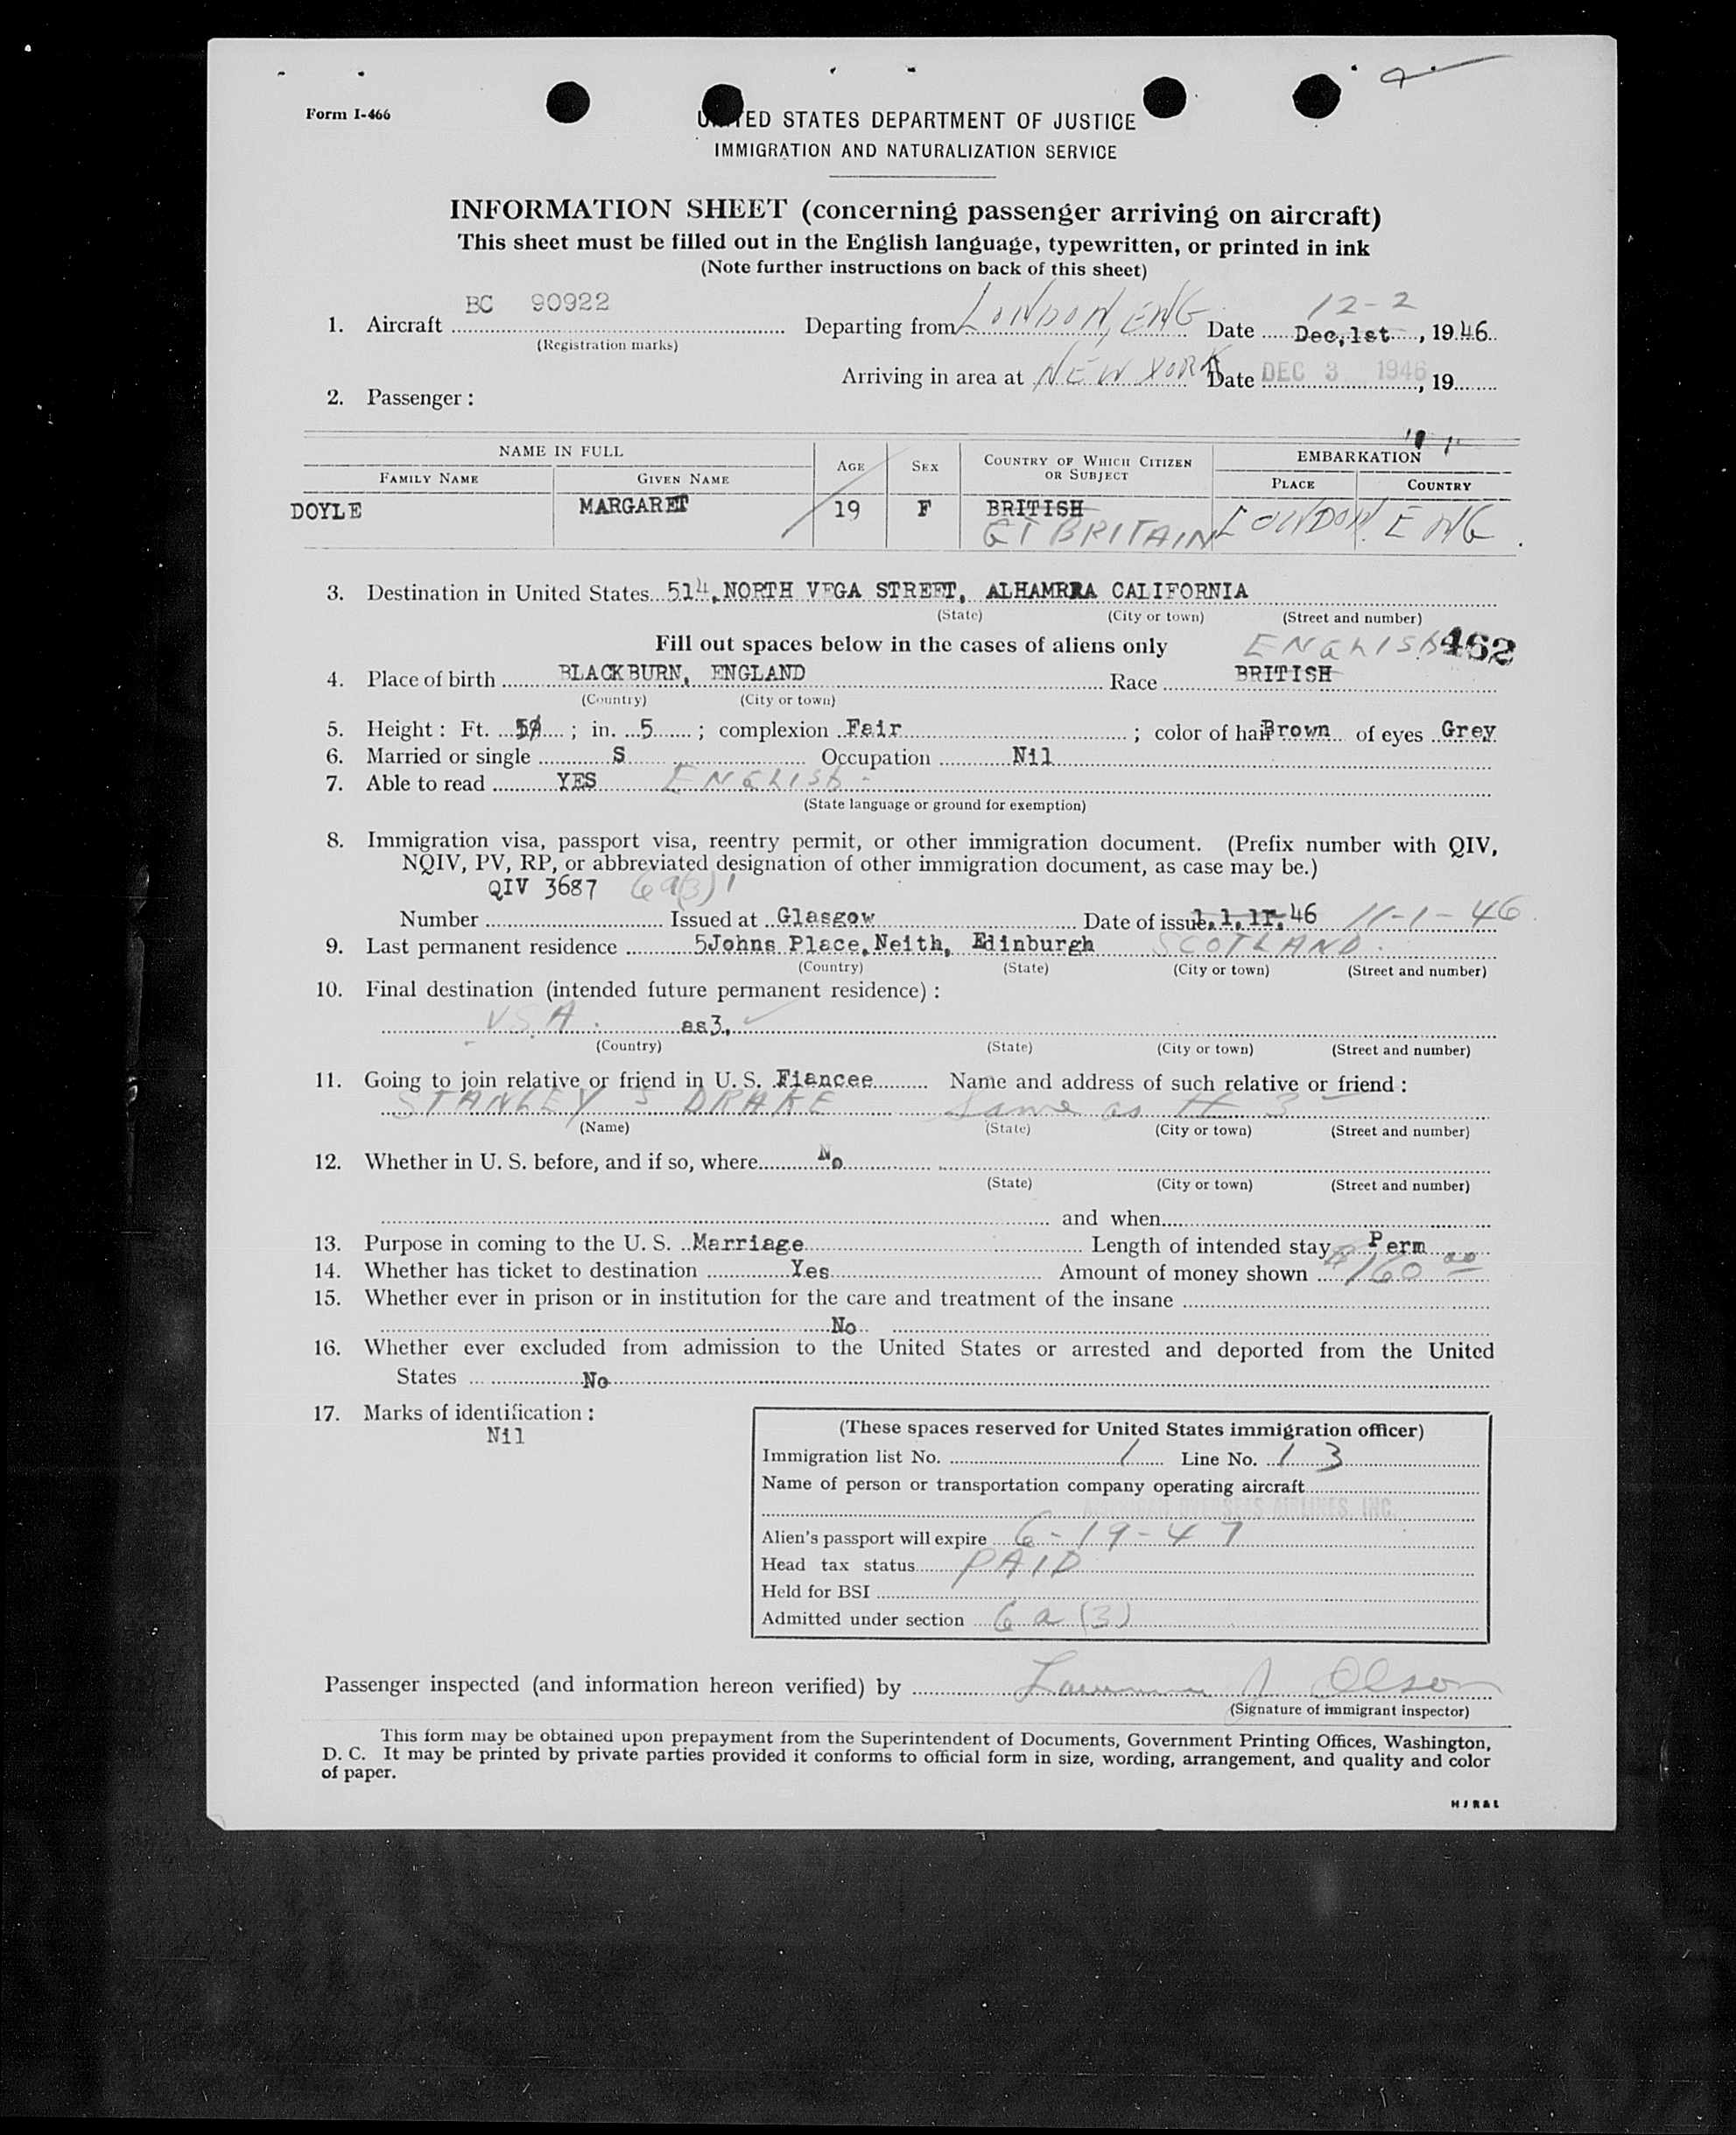 Form I-466
UNITED STATES DEPARTMENT OF JUSTICE
IMMIGRATION AND NATURALIZATION SERVICE
INFORMATION SHEET (concerning passenger arriving on aircraft)
This sheet must be filled out in the English language, typewritten, or printed in ink
(Note further instructions on back of this sheet)
BC 90922 12-2
1. Aircraft Departing from LONDON, ENG Date Dec, 1st, 1946
(Registration marks)
Arriving in area at NEW YORK Date DEC 3 1946, 19
2. Passenger:
NAME IN FULL AGE SEX COUNTRY OF WHICH CITIZEN OR SUBJECT EMBARKATION
FAMILY NAME GIVEN NAME PLACE COUNTRY
DOYLE MARGARET 19 F BRITISH
GT BRITAIN LONDON ENG.
3. Destination in United States 514, NORTH VEGA STREET, ALHAMRRA CALIFORNIA
(State) (City or town) (Street and number)
Fill out spaces below in the cases of aliens only ENGLISH 462
4. Place of birth BLACKBURN, ENGLAND Race BRITISH
(Country) (City or town)
5. Height: Ft. 5; in. 5; complexion Fair; color of hair Brown of eyes Grey
6. Married or single S Occupation Nil
7. Able to read YES ENGLISH -
(State language or ground for exemption)
8. Immigration visa, passport visa, reentry permit, or other immigration document. (Prefix number with QIV,
NQIV, PV, RP, or abbreviated designation of other immigration document, as case may be.)
QIV 3687 6a(3)
Number Issued at Glasgow Date of issue 1.11.46 11-1-46
9. Last permanent residence 5Johns Place, Neith, Edinburgh SCOTLAND.
(Country) (State) (City or town) (Street and number)
10. Final destination (intended future permanent residence):
USA. as3.
(Country) (State) (City or town) (Street and number)
11. Going to join relative or friend in U. S. Fiancee Name and address of such relative or friend:
STANLEY S DRAKE Same as # 3
(Name) (State) (City or town) (Street and number)
12. Whether in U. S. before, and if so, where No
(State) (City or town) (Street and number)
and when
13. Purpose in coming to the U. S. Marriage Length of intended stay Perm
14. Whether has ticket to destination Yes Amount of money shown $160 00
15. Whether ever in prison or in institution for the care and treatment of the insane
No
16. Whether ever excluded from admission to the United States or arrested and deported from the United
States No
17. Marks of identification:
Nil
(These spaces reserved for United States immigration officer)
Immigration list No. 1 Line No. 13
Name of person or transportation company operating aircraft
OVERSEAS AIRLINES, INC.
Alien's passport will expire 6-19-47
Head tax status PAID
Held for BSI
Admitted under section 6a (3)
Passenger inspected (and information hereon verified) by J Olson
(Signature of immigrant inspector)
This form may be obtained upon prepayment from the Superintendent of Documents, Government Printing Offices, Washington,
D. C. It may be printed by private parties provided it conforms to official form in size, wording, arrangement, and quality and color
of paper.